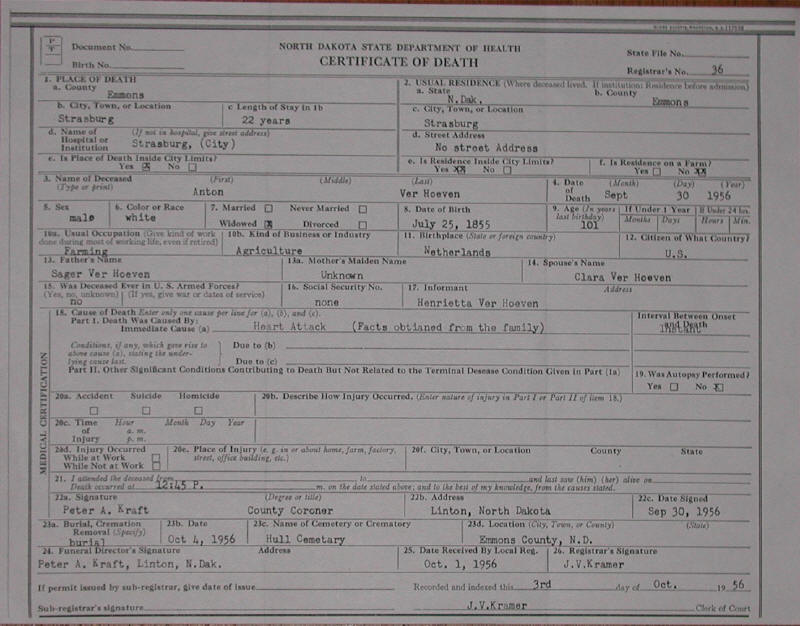 P
T
Document No.
NORTH DAKOTA STATE DEPARTMENT OF HEALTH
State File No.
Birth No.
CERTIFICATE OF DEATH
Registrar's No. 36
1. PLACE OF DEATH
a. County
Emmons
2. USUAL RESIDENCE (Where deceased lived. If institution: Residence before admission)
a. State b. County
N.Dak. Emmons
b. City, Town, or Location c Length of Stay in 1b
Strasburg 22 years
c. City, Town, or Location
Strasburg
d. Name of Hospital or Institution (If not in hospital, give street address)
Strasburg, (City)
d. Street Address
No street Address
e. Is Place of Death Inside City Limits?
Yes X No
e. Is Residence Inside City Limits?
Yes XX No
f. Is Residence on a Farm?
Yes No XX
3. Name of Deceased (First) (Middle) (Last)
(Type or print) Anton Ver Hoeven
4. Date of Death (Month) (Day) (Year)
Sept 30 1956
5. Sex 6. Color or Race 7. Married Never Married
male white Widowed X Divorced
8. Date of Birth
July 25, 1855
9. Age (In years last birthday) If Under 1 Year If Under 24 hrs.
101 Months Days Hours Min.
10a. Usual Occupation (Give kind of work done during most of working life, even if retired)
Farming
10b. Kind of Business or Industry
Agriculture
11. Birthplace (State or foreign country)
Netherlands
12. Citizen of What Country?
U.S.
13. Father's Name 13a. Mother's Maiden Name 14. Spouse's Name
Sager Ver Hoeven Unknown Clara Ver Hoeven
15. Was Deceased Ever in U. S. Armed Forces?
(Yes, no, unknown) (If yes, give war or dates of service)
no
16. Social Security No.
none
17. Informant Address
Henrietta Ver Hoeven
MEDICAL CERTIFICATION
18. Cause of Death Enter only one cause per line for (a), (b), and (c).
Part I. Death Was Caused By:
Immediate Cause (a) Heart Attack (Facts obtianed from the family)
Interval Between Onset and Death
Instant
Conditions, if any, which gave rise to above cause (a), stating the underlying cause last.
Due to (b)
Due to (c)
Part II. Other Significant Conditions Contributing to Death But Not Related to the Terminal Desease Condition Given in Part (1a)
19. Was Autopsy Performed?
Yes No X
20a. Accident Suicide Homicide
20b. Describe How Injury Occurred. (Enter nature of injury in Part I or Part II of item 18.)
20c. Time of Injury Hour a. m. p. m. Month Day Year
20d. Injury Occurred
While at Work
While Not at Work
20e. Place of Injury (e. g. in or about home, farm, factory, street, office building, etc.)
20f. City, Town, or Location County State
21. I attended the deceased from to and last saw (him) (her) alive on
Death occurred at 12:45 P. m. on the date stated above; and to the best of my knowledge, from the causes stated.
22a. Signature (Degree or title) 22b. Address 22c. Date Signed
Peter A. Kraft County Coroner Linton, North Dakota Sep 30, 1956
23a. Burial, Cremation Removal (Specify)
burial
23b. Date
Oct 4, 1956
23c. Name of Cemetery or Crematory
Hull Cemetary
23d. Location (City, Town, or County) (State)
Emmons County, N.D.
24. Funeral Director's Signature Address
Peter A. Kraft, Linton, N.Dak.
25. Date Received By Local Reg.
Oct. 1, 1956
26. Registrar's Signature
J.V.Kramer
If permit issued by sub-registrar, give date of issue
Recorded and indexed this 3rd day of Oct. 19 56
Sub-registrar's signature
J.V.Kramer Clerk of Court